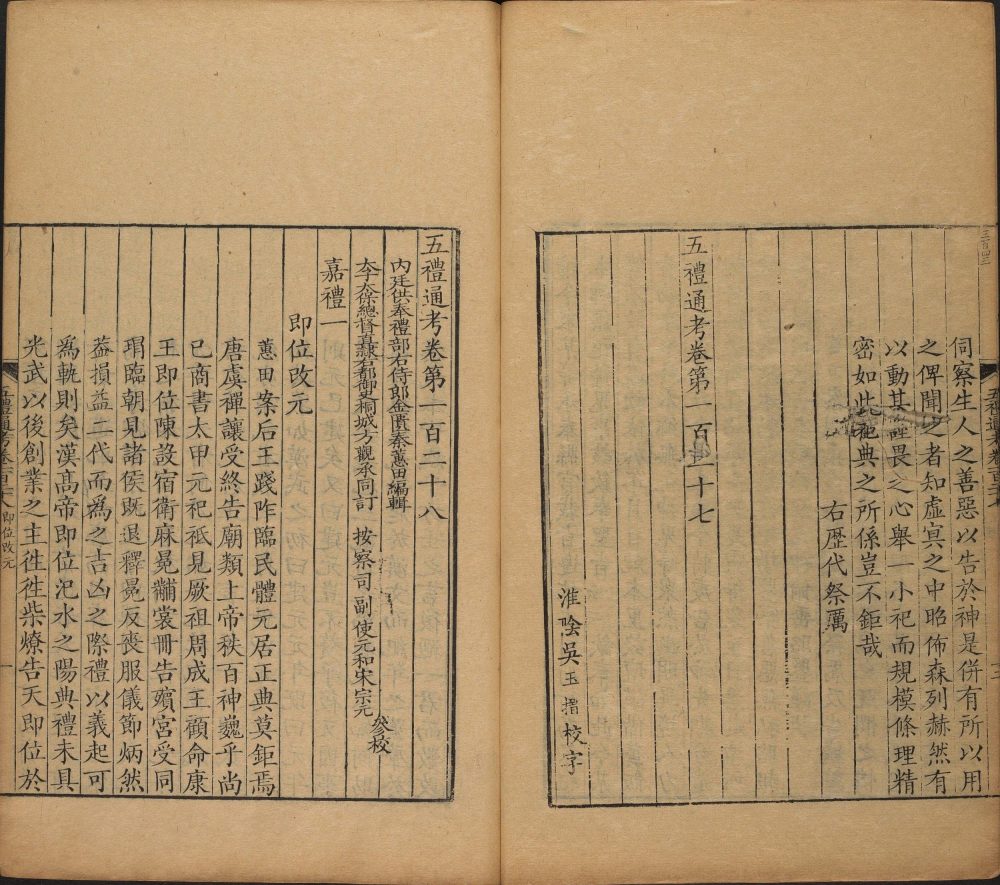 伺察生人之善惡以告於神是併有所以用
之俾聞之者知虛冥之中昭佈森列赫然有
以動其畏之心舉一小祀而規模條理精
密如此祀典之所係豈不鉅哉
右歷代祭厲
五禮通考卷第一百二十七
淮陰吳玉搢校字
五禮通考卷第一百二十八
內廷供奉禮部右侍郎金匱秦蕙田編輯
太保總督直隸右都御史桐城方觀承同訂
按察司副使元和宋宗元
參校
嘉禮一
即位改元
蕙田案后王踐阼臨民體元居正典莫鉅焉
唐虞禪讓受終告廟類上帝秩百神巍乎尚
已商書太甲元祀祗見厥祖周成王顧命康
王即位陳設宿衛麻冕黼裳冊告殯宮受同
瑁臨朝見諸侯既退釋冕反喪服儀節炳然
葢損益二代而為之吉凶之際禮以義起可
為軌則矣漢高帝即位汜水之陽典禮未具
光武以後創業之主徃徃柴燎告天即位於
五禮通考卷一百二十八 即位改元
一